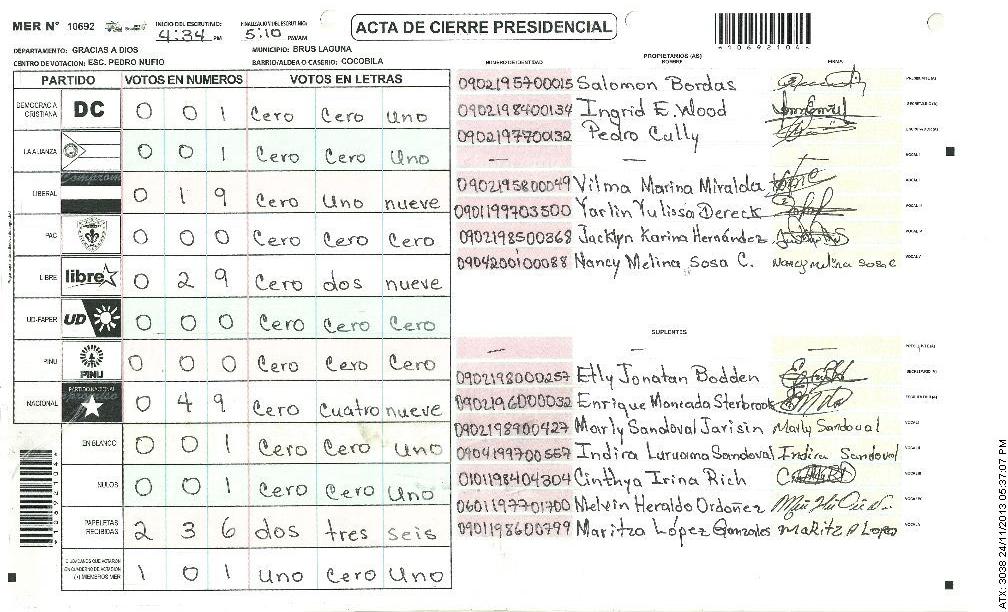 MER N° 10692 INICIO DEL ESCRUTINIO: 4:34 PM FINALIZACIÓN DEL ESCRUTINIO: 5:10 PM/AM
ACTA DE CIERRE PRESIDENCIAL
DEPARTAMENTO: GRACIAS A DIOS MUNICIPIO: BRUS LAGUNA
CENTRO DE VOTACION: ESC. PEDRO NUFIO BARRIO/ALDEA O CASERIO: COCOBILA
PARTIDO VOTOS EN NUMEROS VOTOS EN LETRAS
DEMOCRACIA CRISTIANA DC 0 0 1 Cero Cero Uno
LA ALIANZA 0 0 1 Cero Cero Uno
LIBERAL 0 1 9 Cero Uno nueve
PAC 0 0 0 Cero Cero Cero
LIBRE libre 0 2 9 Cero dos nueve
UD-FAPER UD 0 0 0 Cero Cero Cero
PINU PINU 0 0 0 Cero Cero Cero
NACIONAL PARTIDO NACIONAL 0 4 9 Cero Cuatro nueve
EN BLANCO 0 0 1 Cero Cero Uno
NULOS 0 0 1 Cero Cero Uno
PAPELETAS RECIBIDAS 2 3 6 dos tres seis
CIUDADANOS QUE VOTARON EN CUADERNO DE VOTACION (+) MIEMBROS MER 1 0 1 Uno Cero Uno
PROPIETARIOS (AS)
NUMERO DE IDENTIDAD NOMBRE FIRMA
0902195700015 Salomon Bordas
0902198400134 Ingrid E. Wood
0902197700132 Pedro Cully
— —
0902195800049 Vilma Marina Miralda
0901199703500 Yarlin Yulissa Dereck
0902198500368 Jacklyn Karina Hernández
0904200100088 Nancy Melina Sosa C. Nancy Melina Sosa C
SUPLENTES
— — —
0902198000257 Etly Jonatan Bodden
0902196000032 Enrique Moncada Sterbrook
0902198900427 Marly Sandoval Jarisin Marly Sandoval
0904199700557 Indira Luruama Sandoval Indira Sandoval
0101198404304 Cinthya Irina Rich
0601197701700 Melvin Heraldo Ordoñez
0901198600799 Maritza López Gonzales Maritza Lopez
ATX: 3038 24/11/2013 05:37:07 PM